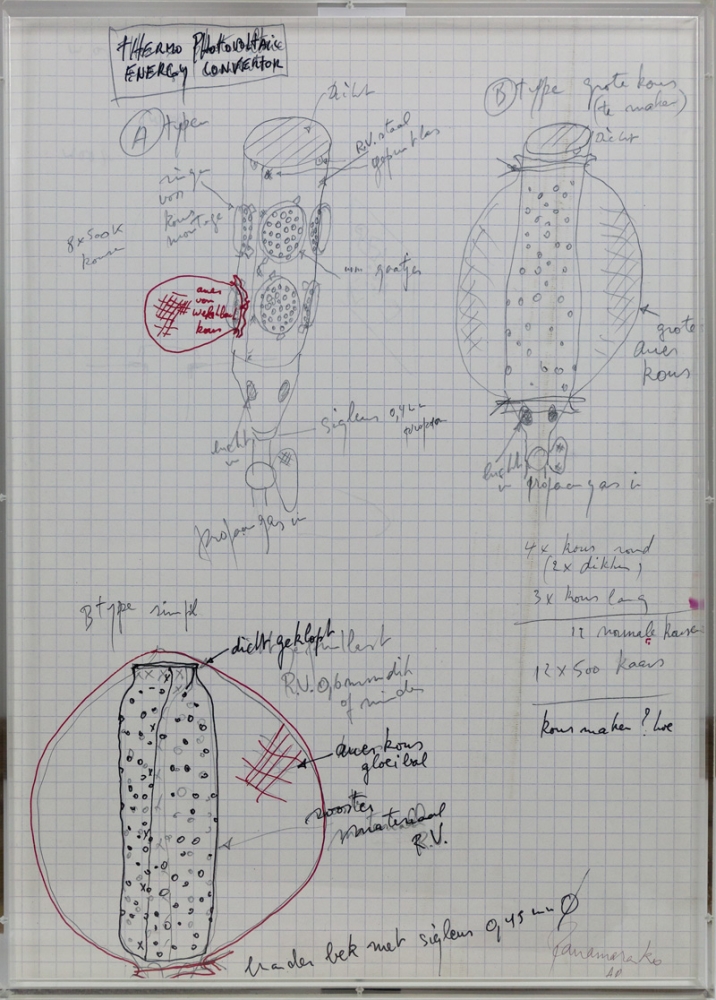 THERMO PHOTOVOLTAIC
ENERGY CONVERTOR
A type
dicht
R.V. staal
gepuntlas
ringen
voor
kous
montage
8x500K
kousen
gaatjes
auer
von
kous
lucht
in
sigleus 0,4
propaan
propaan gas in
B type grote kous
(te maken)
dicht
grote
auer
kous
lucht
in propaan gas in
4x kous rond
(2x dikte)
3x kous lang
12 normale kousen
12x500 kaars
kous maken? hoe
B type simpel
dicht geklopt
R.V. 0,6 mm dik
of minder
auerkous
gloeibol
rooster
materiaal
R.V.
brander bek met sigleus 0,45 mm Ø
Panamarenko